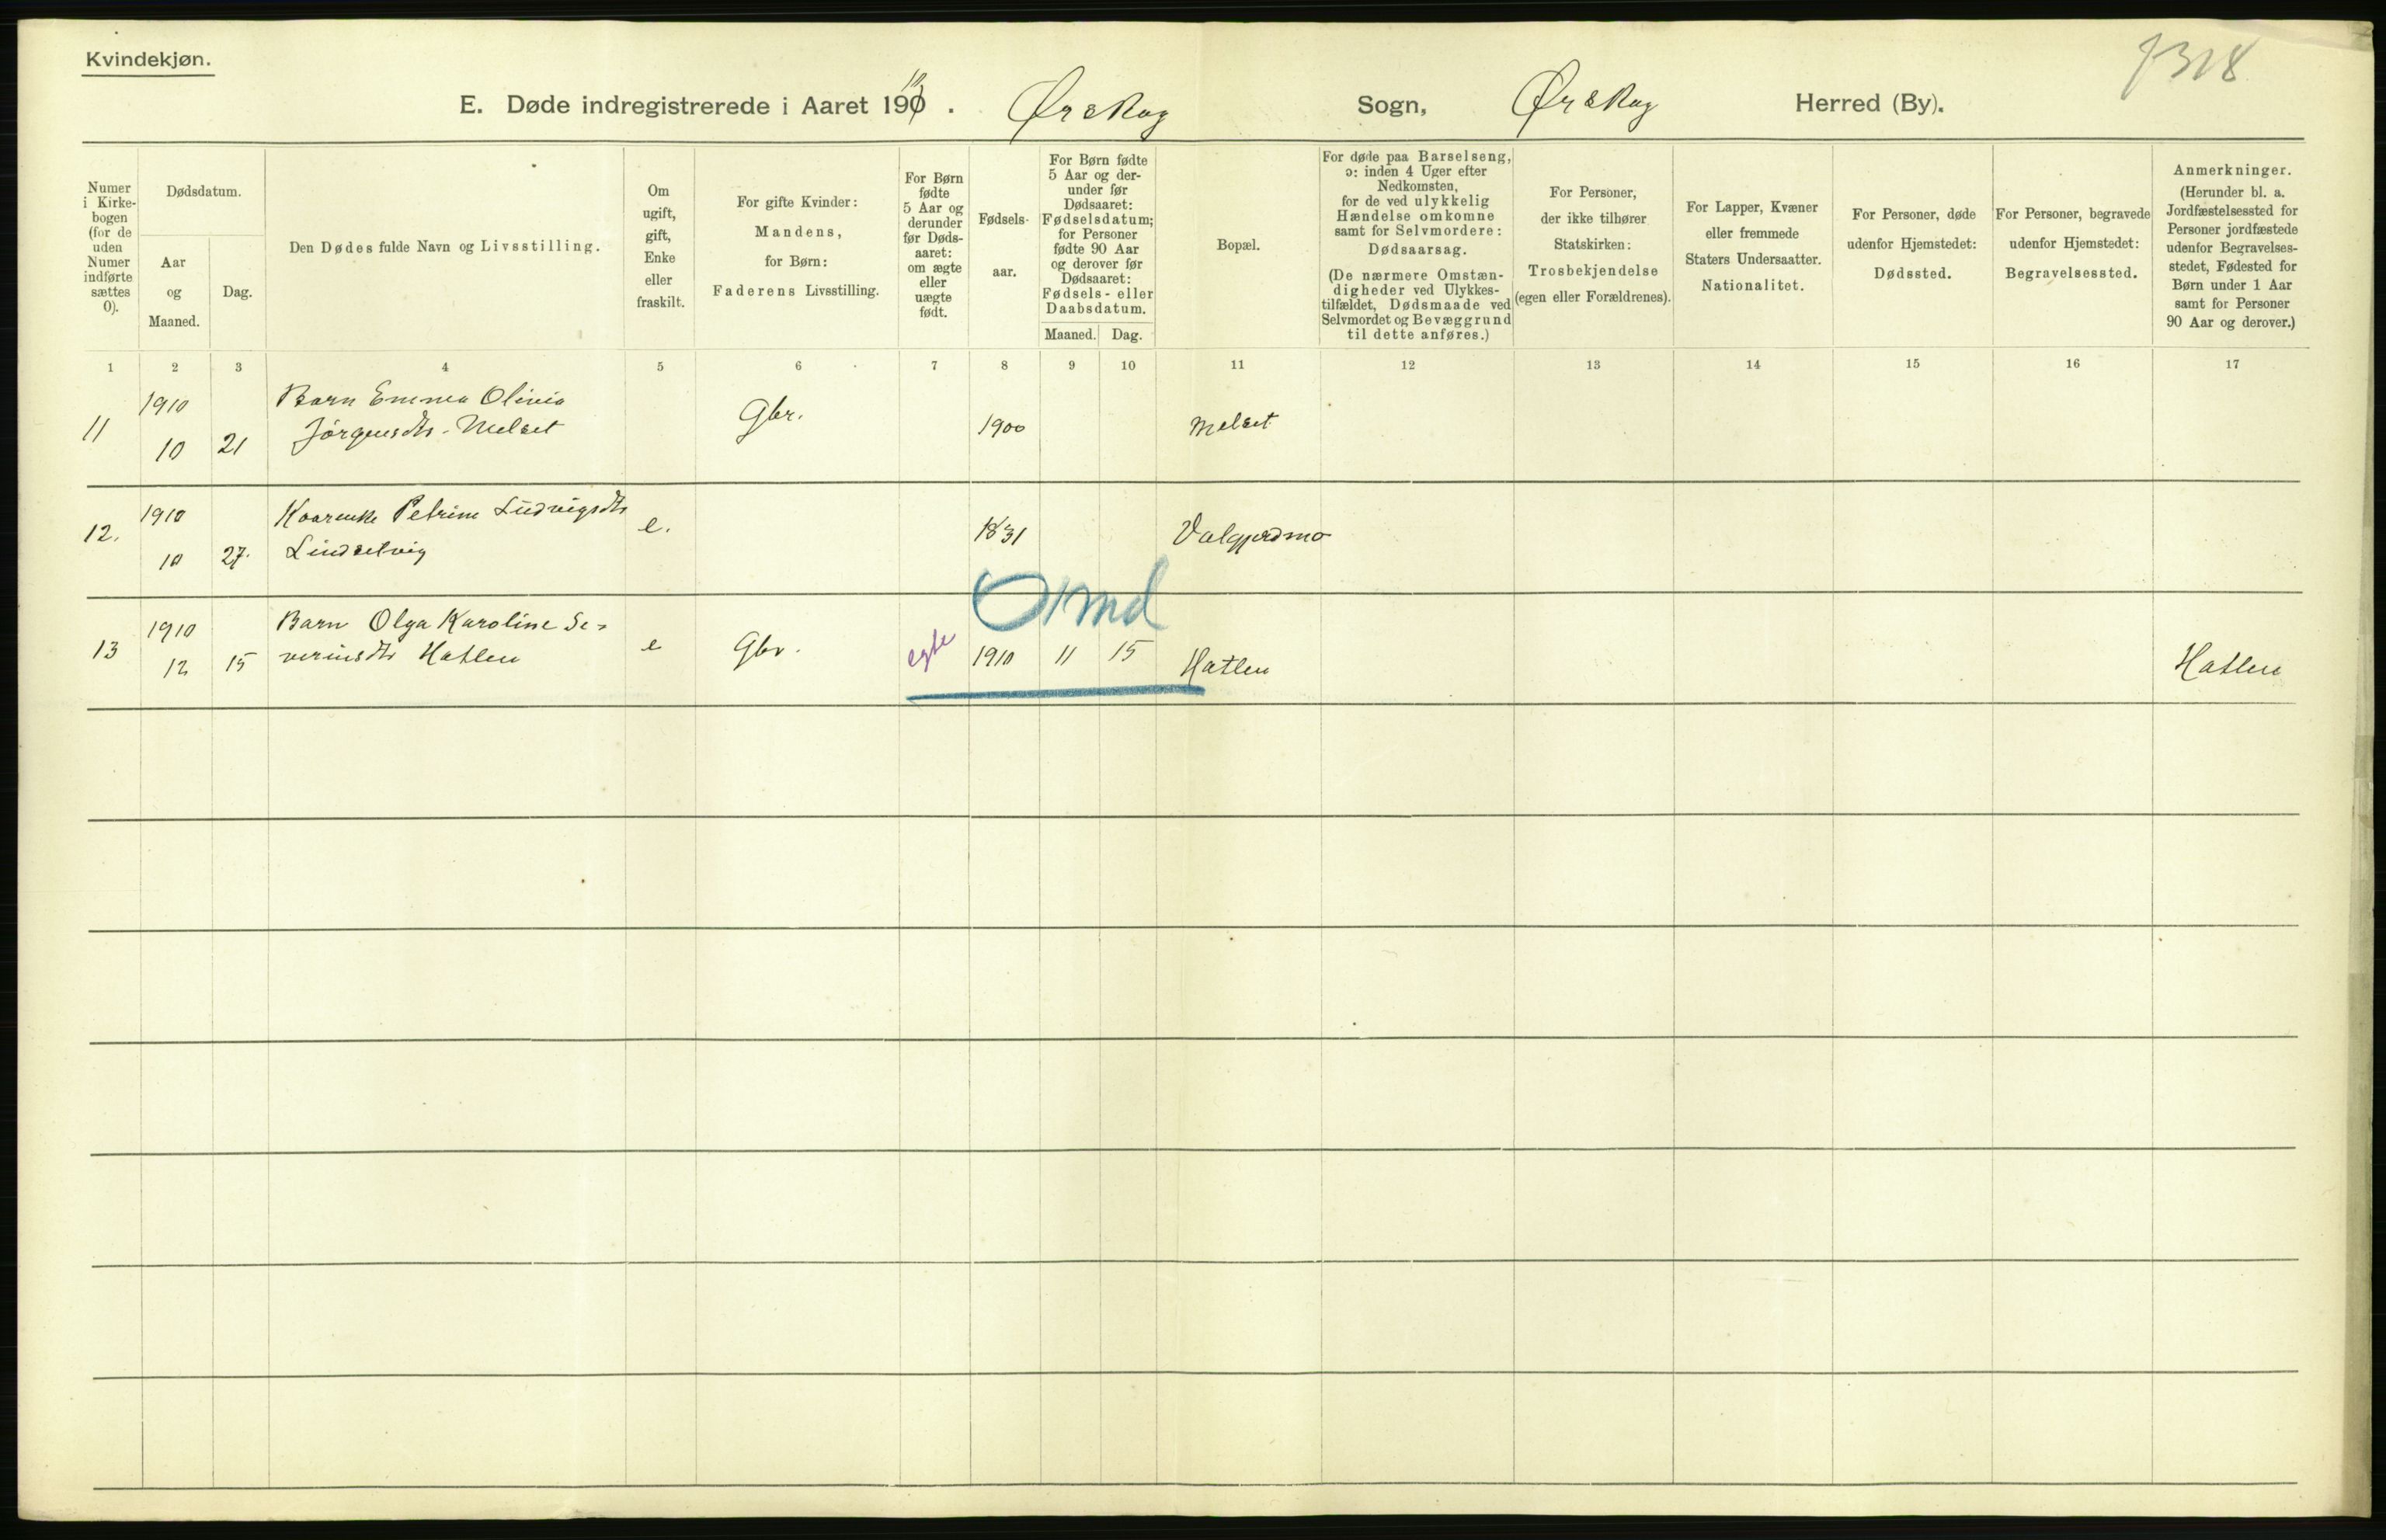 Kvindekjøn.
7318
E. Døde indregistrerede i Aaret 1910. Ørskog Sogn, Ørskog Herred (By).
Numer i Kirke-bogen (for de uden Numer indførte sættes 0).
Dødsdatum.
Aar og Maaned.
Dag.
Den Dødes fulde Navn og Livsstilling.
Om ugift, gift, Enke eller fraskilt.
For gifte Kvinder: Mandens, for Børn: Faderens Livsstilling.
For Børn fødte 5 Aar og derunder før Døds-aaret: om ægte eller uægte født.
Fødsels-aar.
For Børn fødte 5 Aar og der-under før Dødsaaret: Fødselsdatum; for Personer fødte 90 Aar og derover før Dødsaaret: Fødsels- eller Daabsdatum.
Maaned. Dag.
Bopæl.
For døde paa Barselseng, ɔ: inden 4 Uger efter Nedkomsten, for de ved ulykkelig Hændelse omkomne samt for Selvmordere: Dødsaarsag.
(De nærmere Omstæn-digheder ved Ulykkes-tilfældet, Dødsmaade ved Selvmordet og Bevæggrund til dette anføres.)
For Personer, der ikke tilhører Statskirken: Trosbekjendelse (egen eller Forældrenes).
For Lapper, Kvæner eller fremmede Staters Undersaatter. Nationalitet.
For Personer, døde udenfor Hjemstedet: Dødssted.
For Personer, begravede udenfor Hjemstedet: Begravelsessted.
Anmerkninger.
(Herunder bl. a. Jordfæstelsessted for Personer jordfæstede udenfor Begravelses-stedet, Fødested for Børn under 1 Aar samt for Personer 90 Aar og derover.)
1 2 3 4 5 6 7 8 9 10 11 12 13 14 15 16 17
11 1910 10 21 Barn Emma Olivia
Jörgensdtr. Melset Gbr. 1900 Melset
12. 1910 10 27. Petrine Ludvigsdtr
Lindsetvig e. 1831 Valgjerdmo
0 1 md
13 1910 12 15 Barn Olga Karoline Se-
verinsdtr Hatlen e Gbr. egte 1910 11 15 Hatlen Hatlen